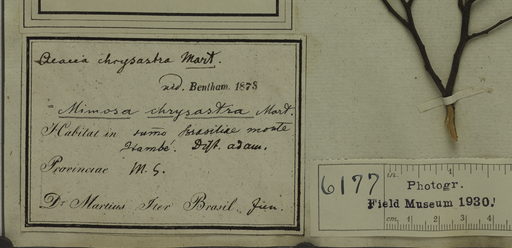 Acacia chrysastra Mart.
vid. Bentham. 1873
Mimosa chrysastra Mart.
Habitat in summo Brasiliae monte
Itambé. Dist. adam.
Provinciae M. G.
Dr Martius Iter Brasil.
6177
in.
Photogr.
Field Museum 1930.
cm. 1 2 3 4